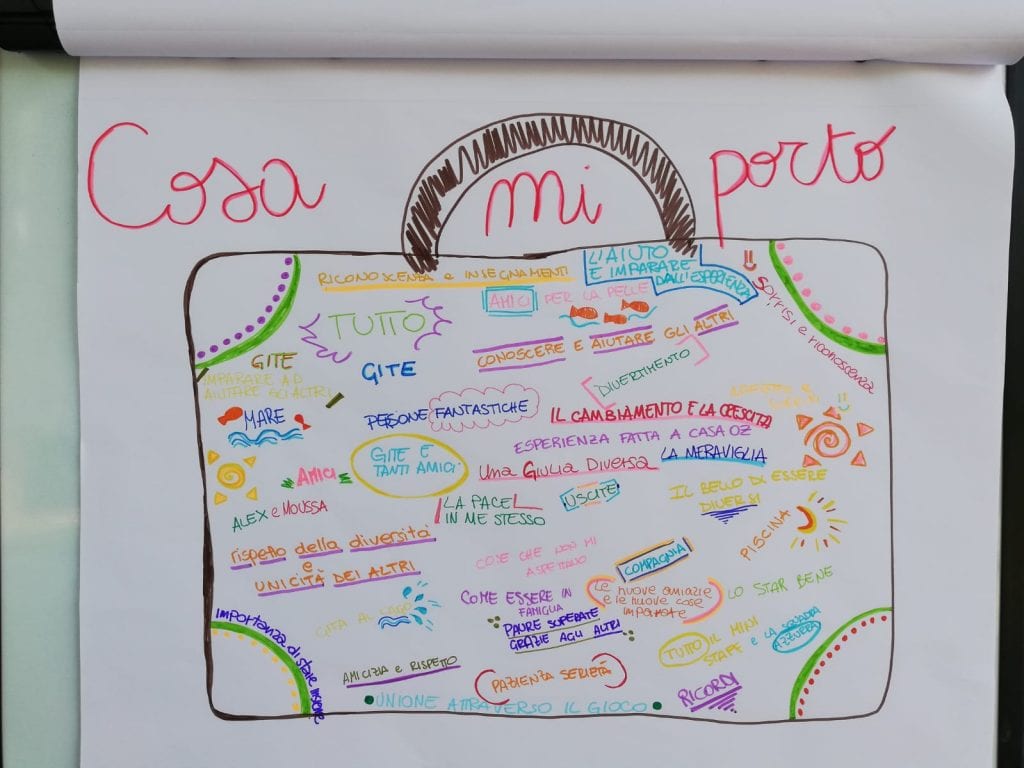 Cosa mi porto
RICONOSCENZA e INSEGNAMENTI
L'AIUTO
E IMPARARE
DALL'ESPERIENZA
SORRISI e riconoscenza
AMICI PER LA PELLE
TUTTO
CONOSCERE E AIUTARE GLI ALTRI
GITE
IMPARARE AD
AIUTARE GLI ALTRI
GITE
DIVERTIMENTO
MARE
PERSONE FANTASTICHE
IL CAMBIAMENTO E LA CRESCITA
ESPERIENZA FATTA A CASA OZ
GITE E
TANTI AMICI
UNA GIULIA DIVERSA
LA MERAVIGLIA
AMICI
ALEX e MOUSSA
LA PACE
IN ME STESSO
USCITE
IL BELLO DI ESSERE
DIVERSI
PISCINA
rispetto della diversità
e
UNICITÀ DEI ALTRI
COSE CHE NON MI
ASPETTAVO
COMPAGNIA
Le nuove amiazie
e le nuove cose
imparate
LO STAR BENE
GITA AL LAGO
COME ESSERE IN
FAMIGLIA
PAURE SUPERATE
GRAZIE AGLI ALTRI
importanza di stare insieme
TUTTO IL MINI
STAFF e LA SQUADRA
AZZURRA
AMICIZIA e RISPETTO
PAZIENZA SERIETÀ
RICORDI
UNIONE ATTRAVERSO IL GIOCO